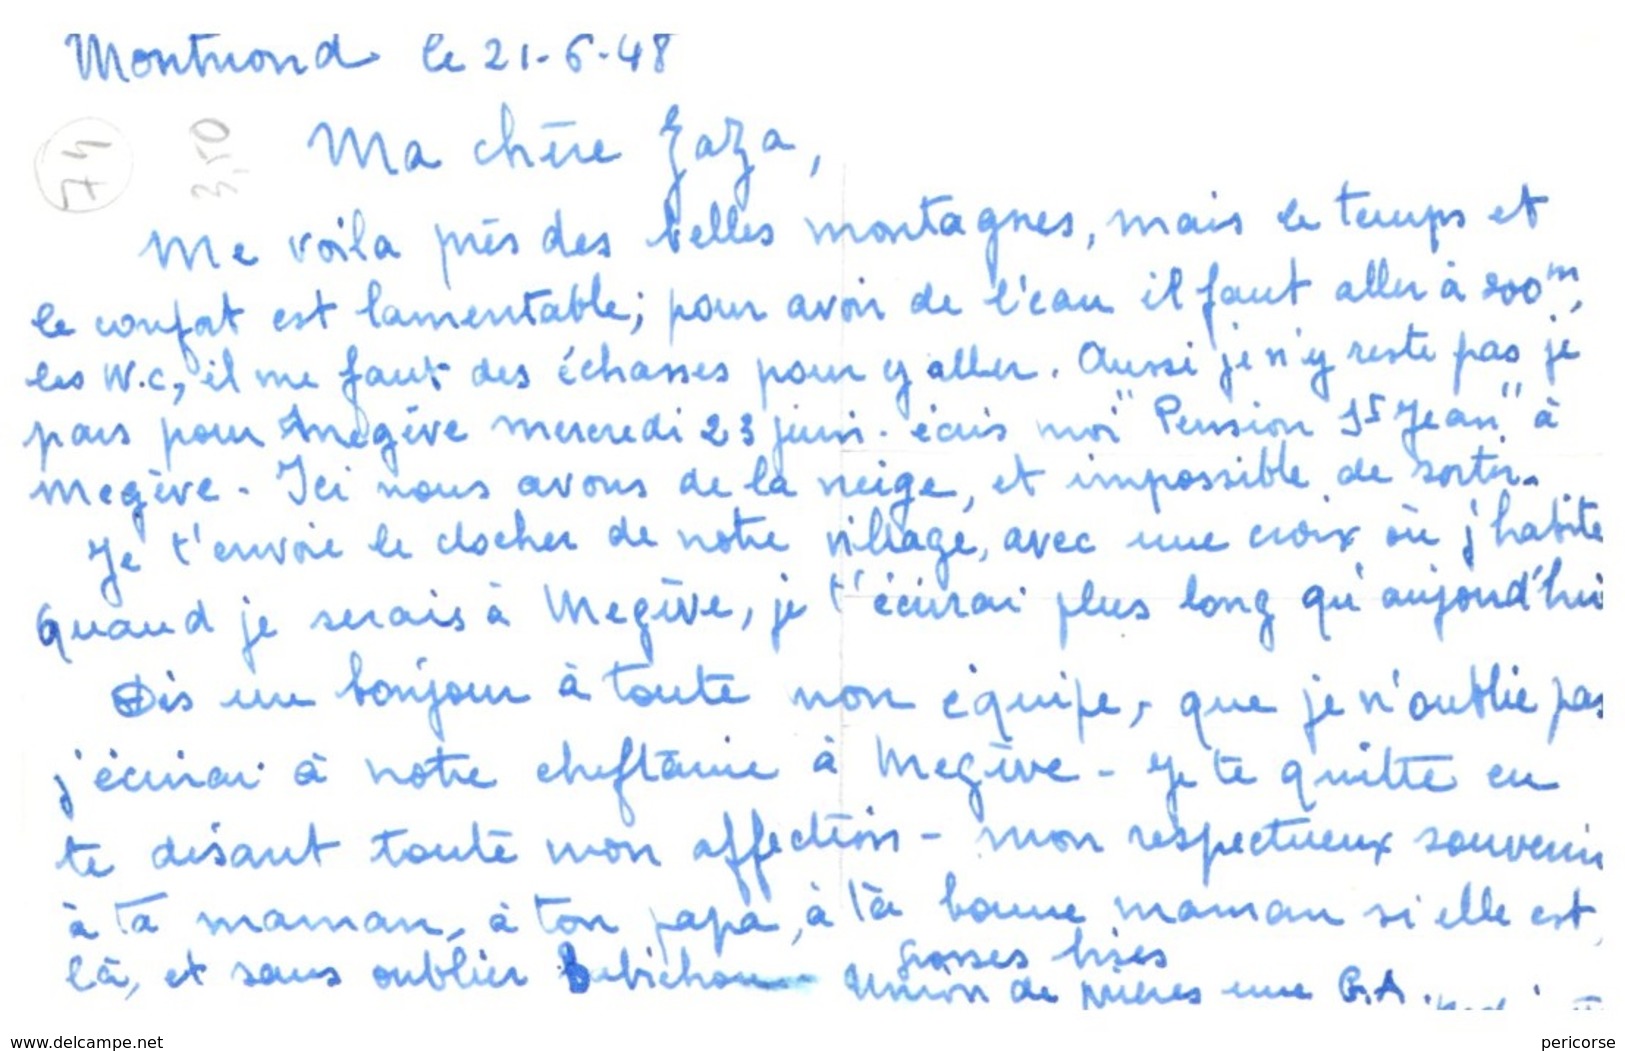 Montriond le 21-6-48
74
3,50
Ma chère Zaza,
Me voila près des belles montagnes, mais le temps et
le confort est lamentable; pour avoir de l'eau il faut aller à 200m,
les W.C, il me faut des échasses pour y aller. Aussi je n'y reste pas je
pars pour Megève mercredi 23 juin. écris moi "Pension St Jean" à
Megève - Ici nous avons de la neige, et impossible de sortir.
Je t'envoie le clocher de notre village, avec une croix où j'habite
Quand je serais à Megève, je t'écrirai plus long qu'aujourd'hui
Dis un bonjour à toute mon équipe, que je n'oublie pas
j'écrirai à notre cheftaine à Megève - Je te quitte en
te disant toute mon affection - mon respectueux souvenir
à ta maman, à ton papa, à ta bonne maman si elle est
là, et sans oublier Bubichon grosses bises
Union de prières une G.A.
www.delcampe.net
pericorse